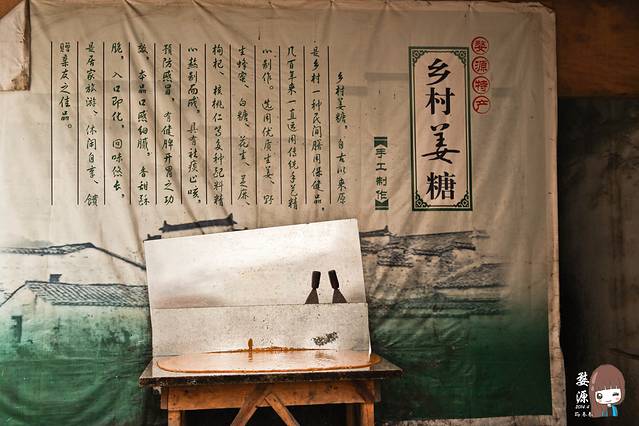 婺源特产
乡村姜糖
手工制作
乡村姜糖，自古以来原
是乡村一种民间膳用保健品，
几百年来一直运用传统手艺精
心制作。选用优质生姜、野
生蜂蜜、白糖、花生、芝麻、
枸杞、核桃仁等多种配料精
心熬制而成，具有祛痰止咳，
预防感冒，有健脾开胃之功
效，本品口感细腻，香甜酥
脆，入口即化，回味悠长，
是居家旅游、休闲自享、馈
赠亲友之佳品。
婺源
2014.4